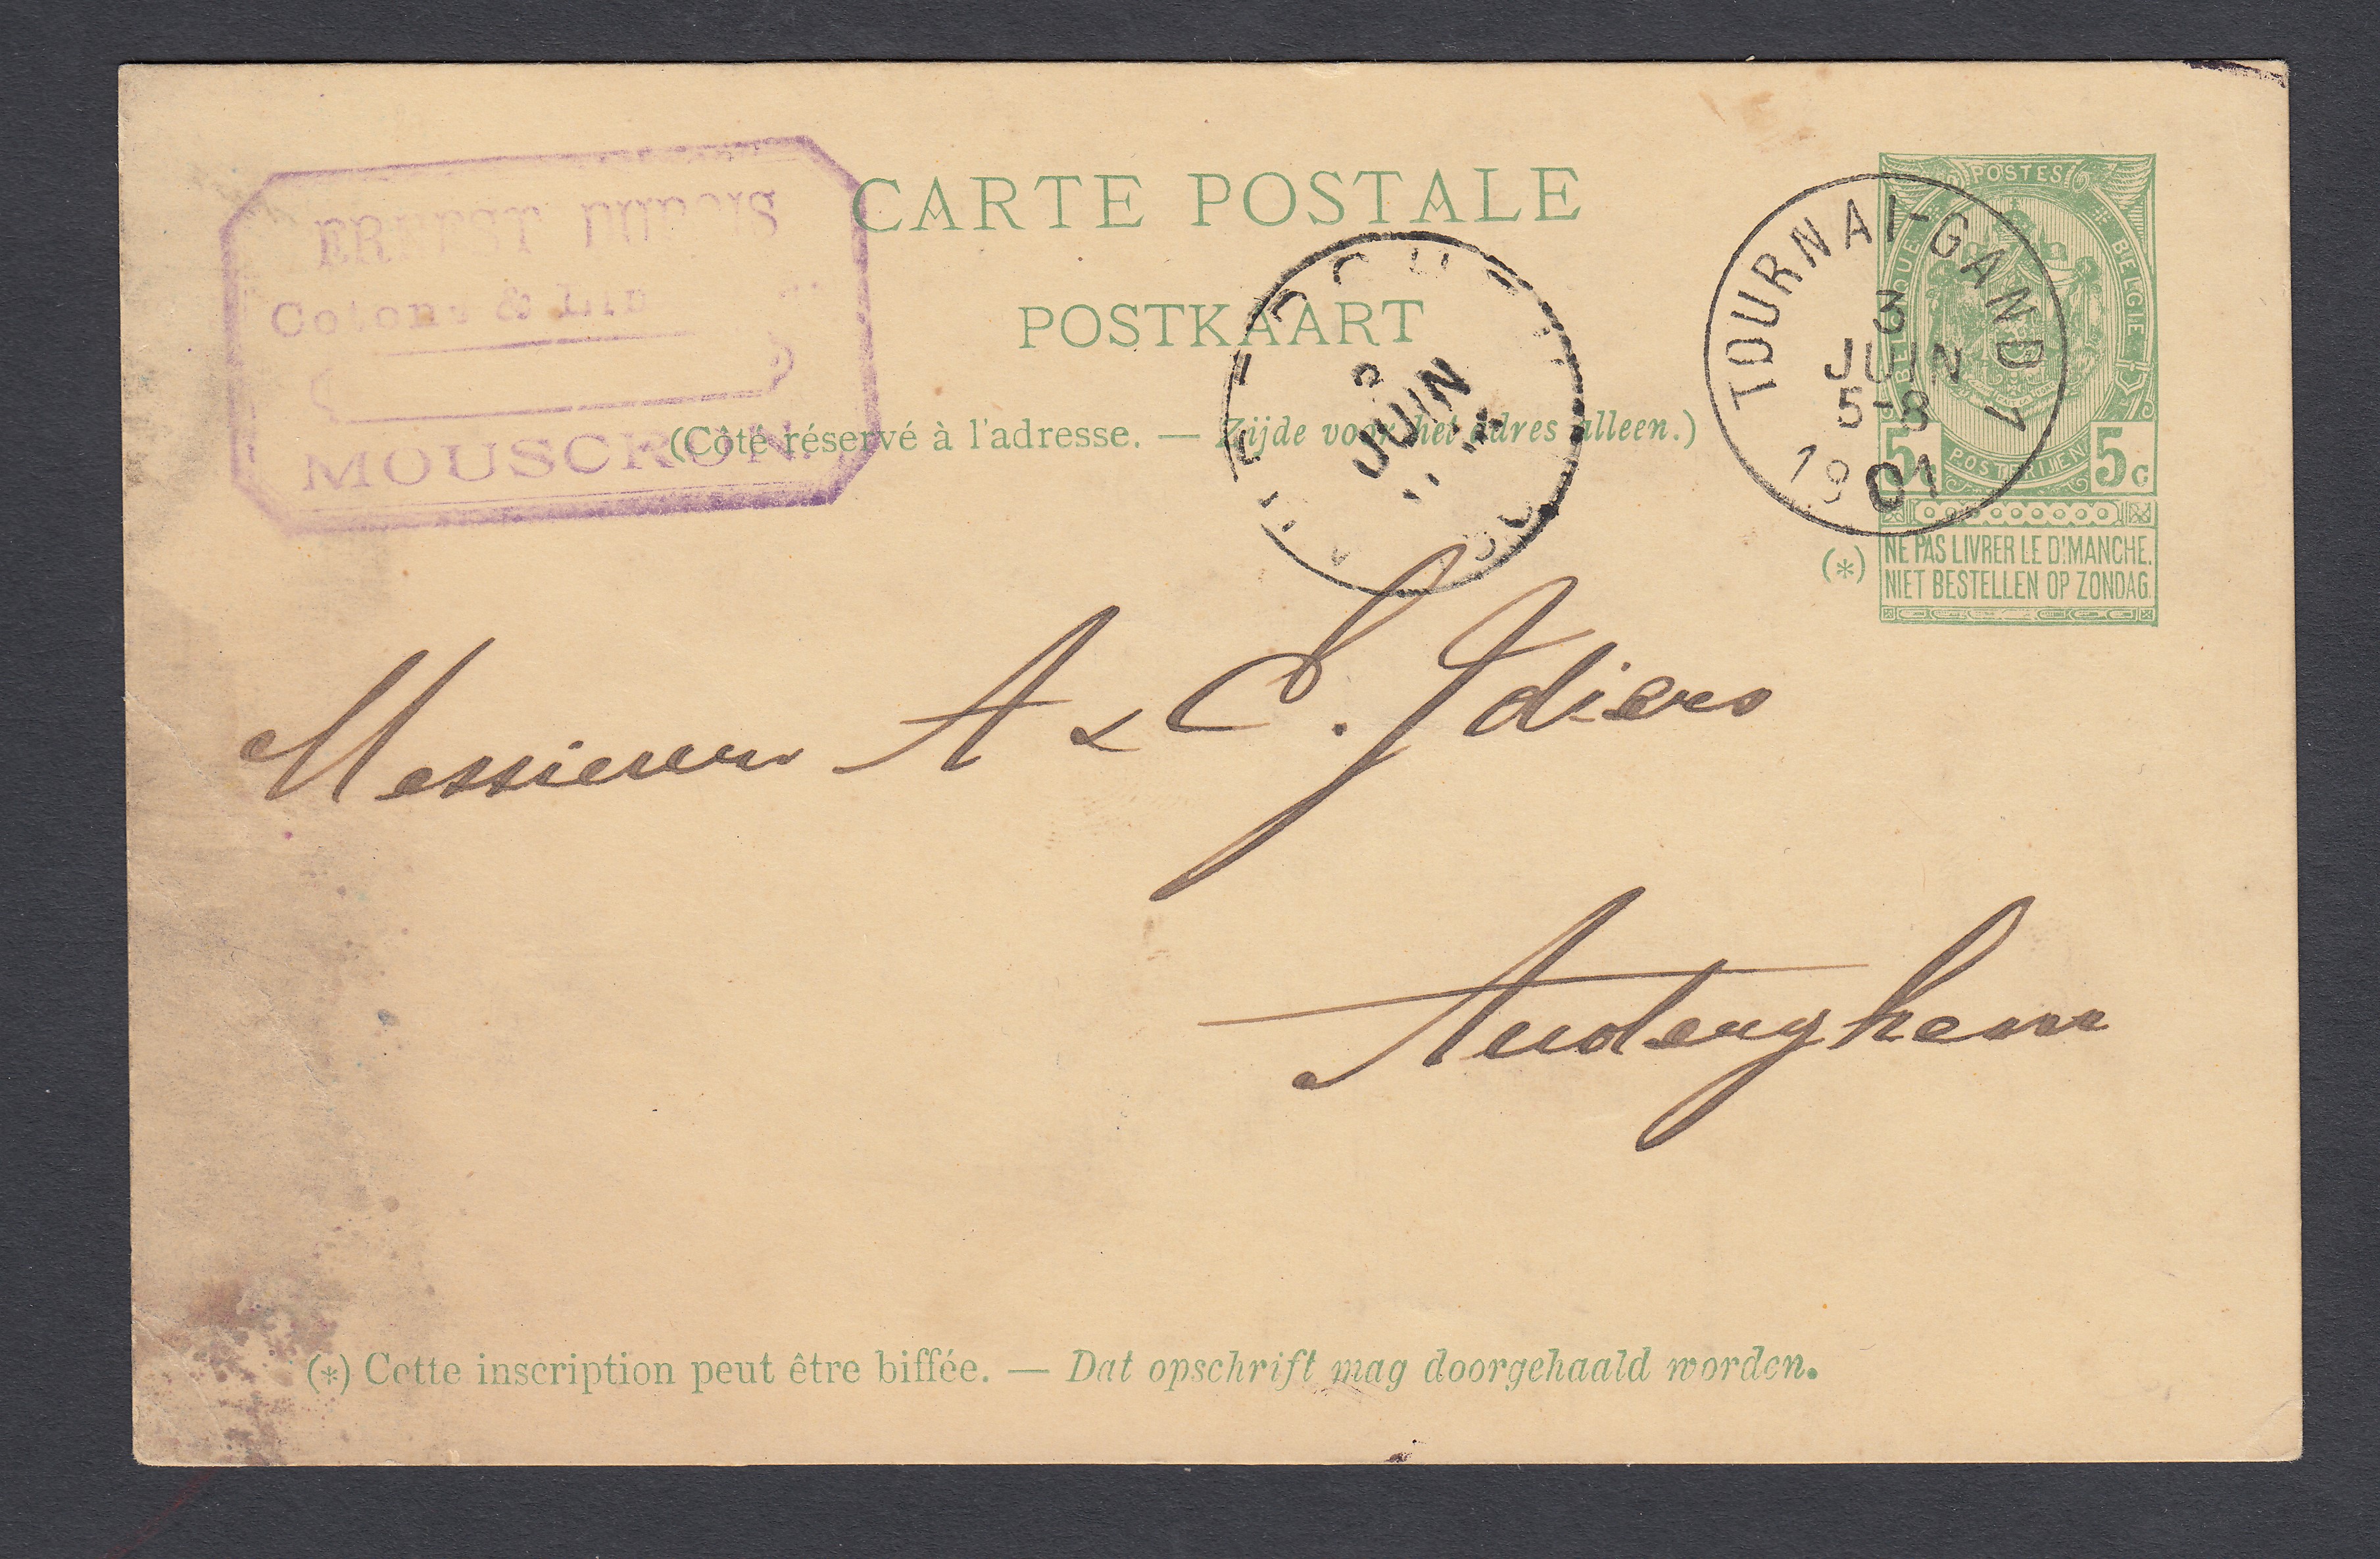 ERNEST DUBOIS
Cotons &
MOUSCRON.
CARTE POSTALE
POSTKAART
(Côté réservé à l'adresse. — Zijde voor het adres alleen.)
JUIN
TOURNAI-GAND 7
3
JUIN
5-8
1901
POSTES
BELGIQUE
BELGIË
5c POSTERIJEN 5c
(*)
NE PAS LIVRER LE DIMANCHE.
NIET BESTELLEN OP ZONDAG.
Messieurs A & C. Idiers
Auderghem
(*) Cette inscription peut être biffée. — Dat opschrift mag doorgehaald worden.